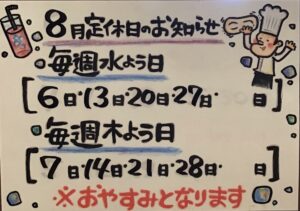 8月定休日のお知らせ
毎週水よう日
[6日・13日・20日・27日・　日]
毎週木よう日
[7日・14日・21日・28日・　日]
※おやすみとなります